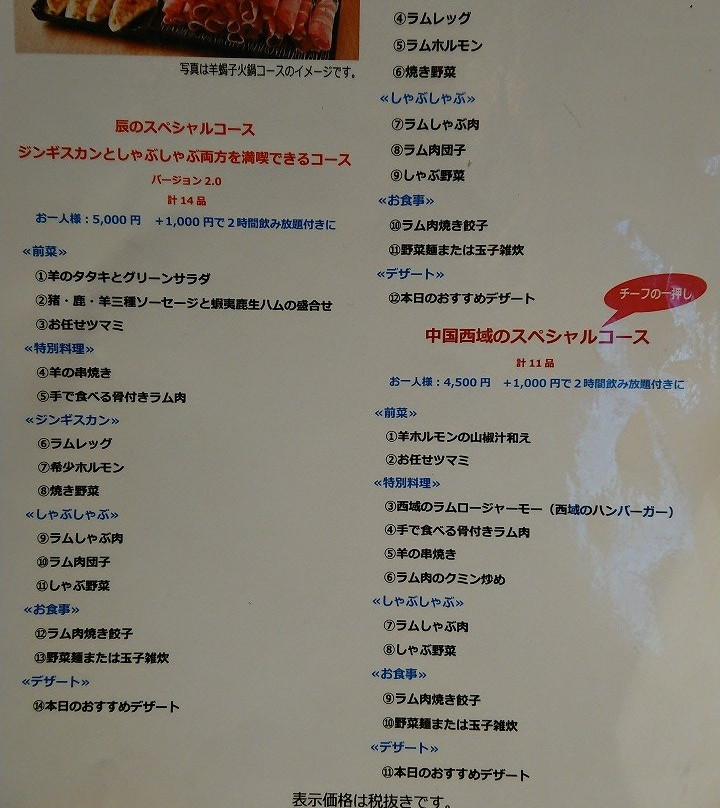 写真は羊蝎子火鍋コースのイメージです。
辰のスペシャルコース
ジンギスカンとしゃぶしゃぶ両方を満喫できるコース
バージョン 2.0
計 14 品
お一人様：5,000 円　＋1,000 円で 2 時間飲み放題付きに
≪前菜≫
①羊のタタキとグリーンサラダ
②猪・鹿・羊三種ソーセージと蝦夷鹿生ハムの盛合せ
③お任せツマミ
≪特別料理≫
④羊の串焼き
⑤手で食べる骨付きラム肉
≪ジンギスカン≫
⑥ラムレッグ
⑦希少ホルモン
⑧焼き野菜
≪しゃぶしゃぶ≫
⑨ラムしゃぶ肉
⑩ラム肉団子
⑪しゃぶ野菜
≪お食事≫
⑫ラム肉焼き餃子
⑬野菜麺または玉子雑炊
≪デザート≫
⑭本日のおすすめデザート
④ラムレッグ
⑤ラムホルモン
⑥焼き野菜
≪しゃぶしゃぶ≫
⑦ラムしゃぶ肉
⑧ラム肉団子
⑨しゃぶ野菜
≪お食事≫
⑩ラム肉焼き餃子
⑪野菜麺または玉子雑炊
≪デザート≫
⑫本日のおすすめデザート
チーフの一押し
中国西域のスペシャルコース
計 11 品
お一人様：4,500 円　＋1,000 円で 2 時間飲み放題付きに
≪前菜≫
①羊ホルモンの山椒汁和え
②お任せツマミ
≪特別料理≫
③西域のラムロージャーモー（西域のハンバーガー）
④手で食べる骨付きラム肉
⑤羊の串焼き
⑥ラム肉のクミン炒め
≪しゃぶしゃぶ≫
⑦ラムしゃぶ肉
⑧しゃぶ野菜
≪お食事≫
⑨ラム肉焼き餃子
⑩野菜麺または玉子雑炊
≪デザート≫
⑪本日のおすすめデザート
表示価格は税抜きです。